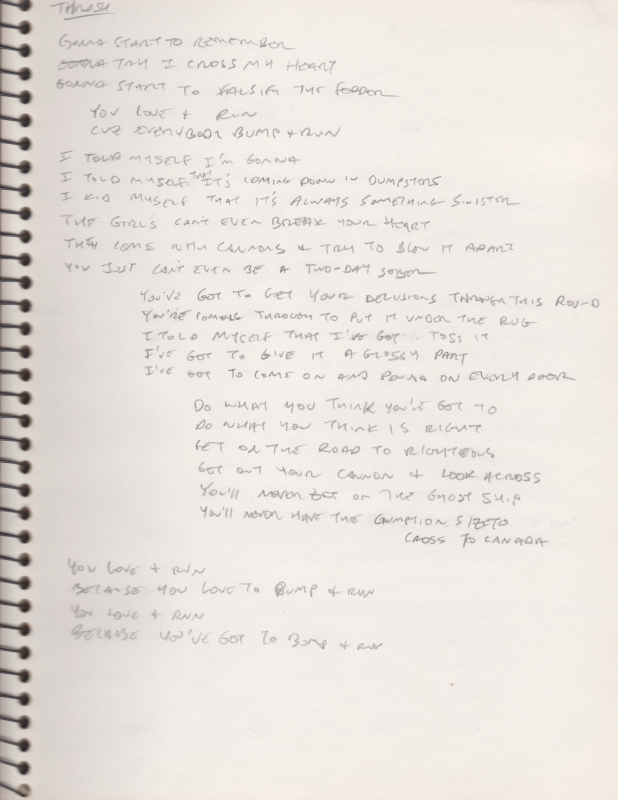 THRUSH
GONNA START TO REMEMBER
GONNA TRY I CROSS MY HEART
GONNA START TO FALSIFY THE FODDER
YOU LOVE + RUN
CUZ EVERYBODY BUMP + RUN
I TOLD MYSELF I'M GONNA
I TOLD MYSELF THAT IT'S COMING DOWN IN DUMPSTORS
I KID MYSELF THAT IT'S ALWAYS SOMETHING SINISTOR
THE GIRLS CAN'T EVEN BREAK YOUR HEART
THEY COME WITH CANNONS & TRY TO BLOW IT APART
YOU JUST CAN'T EVEN BE A TWO-DAY
YOU'VE GOT TO GET YOUR DELUSIONS THROUGH THIS ROUND
YOU'RE COMING THROUGH TO PUT IT UNDER THE RUG
I TOLD MYSELF THAT I'VE GOT TOSS IT
I'VE GOT TO GIVE IT A GLOSSY PART
I'VE GOT TO COME ON AND POUND ON EVERY DOOR
DO WHAT YOU THINK YOU'VE GOT TO
DO WHAT YOU THINK IS RIGHT
GET ON THE ROAD TO RIGHTEOUS
GET OUT YOUR CANNON & LOOK ACROSS
YOU'LL NEVER GET ON THE GHOST SHIP
YOU'LL NEVER HAVE THE GUMPTION SIZE TO
CROSS TO CANADA
YOU LOVE + RUN
BECAUSE YOU LOVE TO BUMP & RUN
YOU LOVE + RUN
BECAUSE YOU'VE GOT TO BUMP + RUN